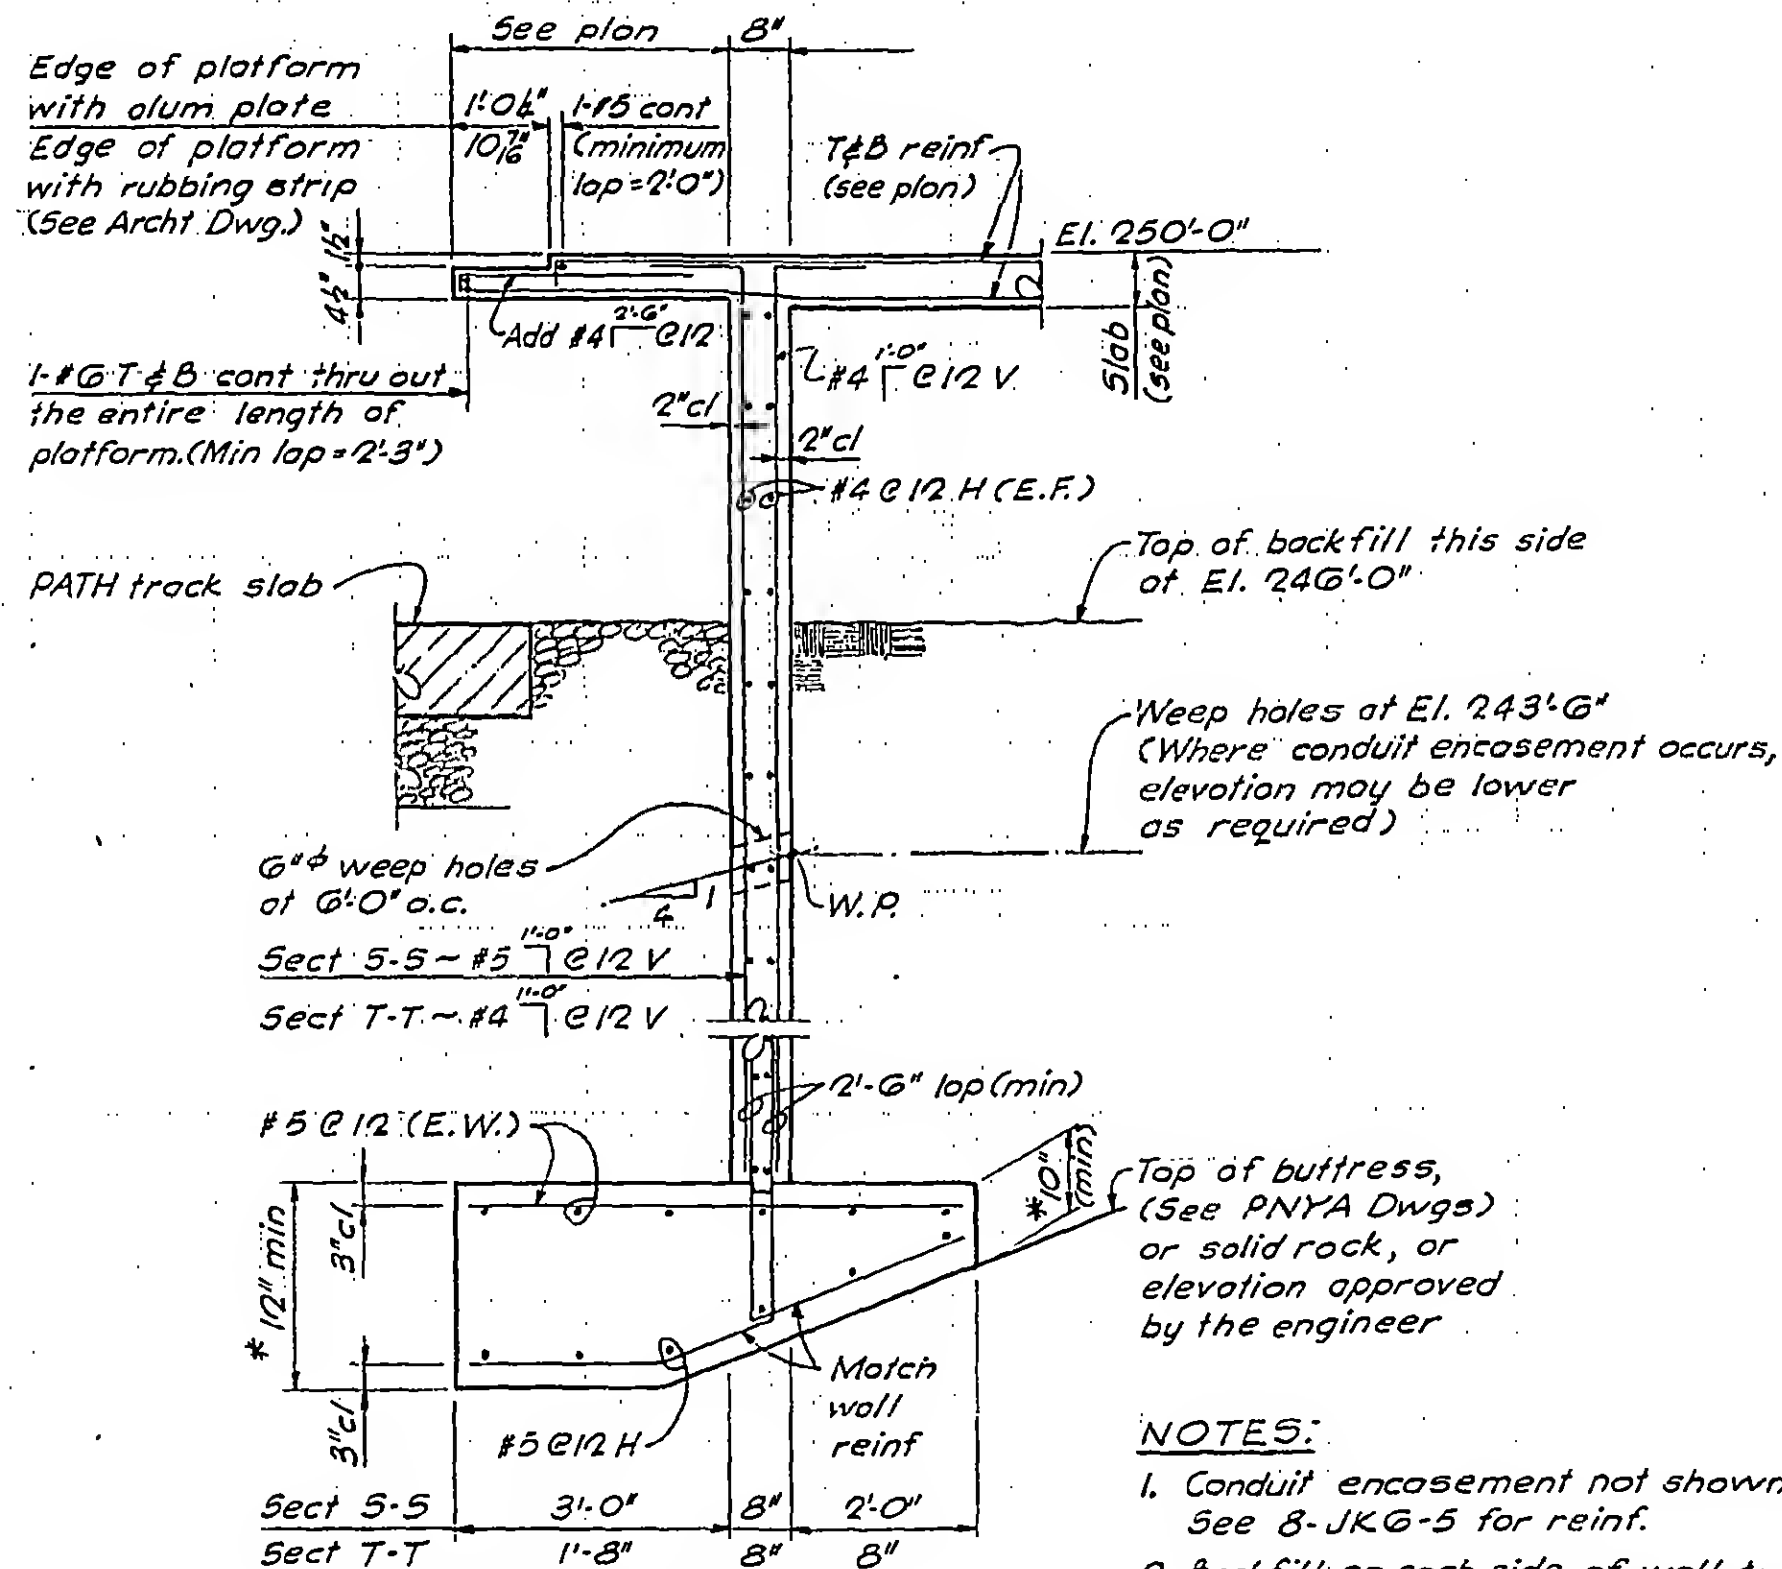 See plan
8"
Edge of platform
with alum plate
Edge of platform
with rubbing strip
(See Archt Dwg.)
1'-0½"
10 7/16"
1-#5 cont
(minimum
lap=2'-0")
T&B reinf
(see plan)
El. 250'-0"
1½"
4½"
Slab
(see plan)
Add #4 2'-6" @12
1-#6 T & B cont thru out
the entire length of
platform.(Min lap=2'-3")
#4 1'-0" @12 V
2"cl
2"cl
#4 @ 12 H (E.F.)
Top of backfill this side
at El. 246'-0"
PATH track slab
Weep holes at El. 243'-6"
(Where conduit encasement occurs,
elevation may be lower
as required)
6"ϕ weep holes
at 6'-0" o.c.
4
1
W.P.
Sect S-S ~ #5 1'-0" @12 V
Sect T-T ~ #4 1'-0" @12 V
2'-6" lap (min)
#5 @ 12 (E.W.)
*10"
(min)
Top of buttress,
(See PNYA Dwgs)
or solid rock, or
elevation approved
by the engineer
* 12" min
3"cl
3"cl
Match
wall
reinf
#5 @12 H
NOTES:
1. Conduit encasement not shown
See 8-JKG-5 for reinf.
Sect S-S 3'-0" 8" 2'-0"
Sect T-T 1'-8" 8" 8"